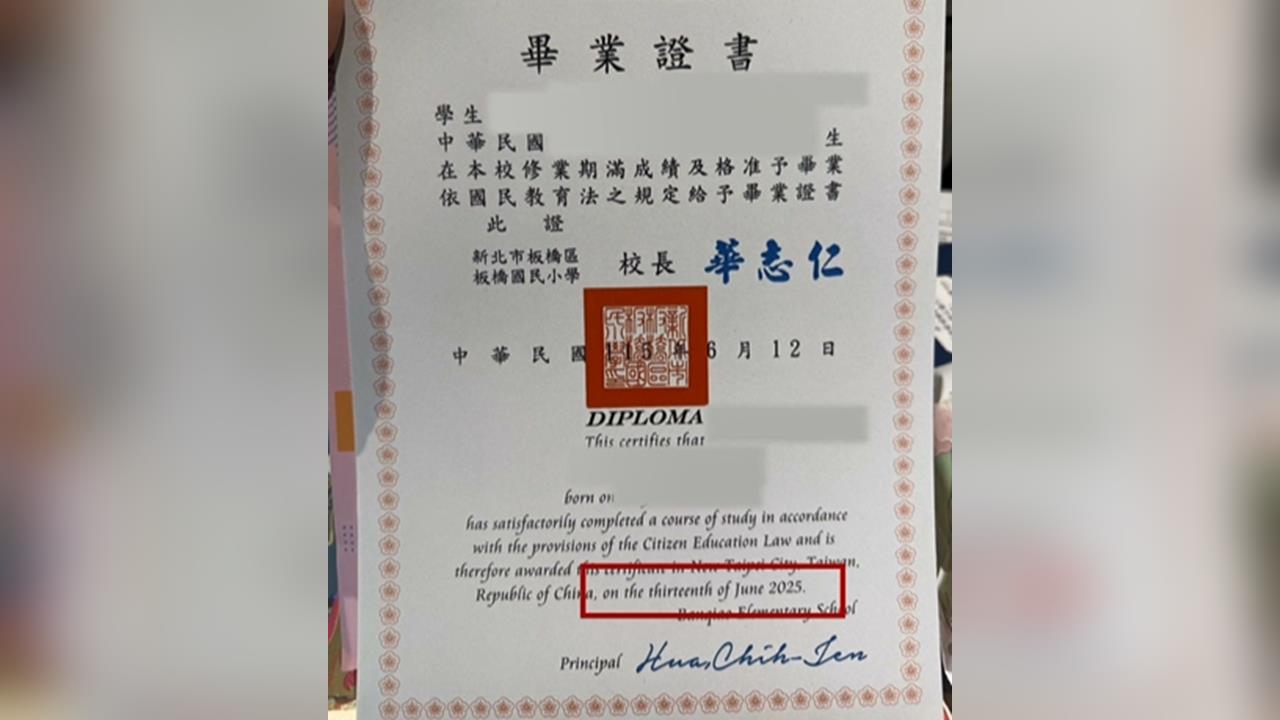 畢業證書
學生
中華民國 生
在本校修業期滿成績及格准予畢業
依國民教育法之規定給予畢業證書
此證
新北市板橋區
板橋國民小學
校長 華志仁
中華民國115年6月12日
DIPLOMA
This certifies that
born on
has satisfactorily completed a course of study in accordance
with the provisions of the Citizen Education Law and is
therefore awarded this certificate in New Taipei City, Taiwan,
Republic of China, on the thirteenth of June 2025.
Banqiao Elementary School
Principal Hua, Chih-Jen